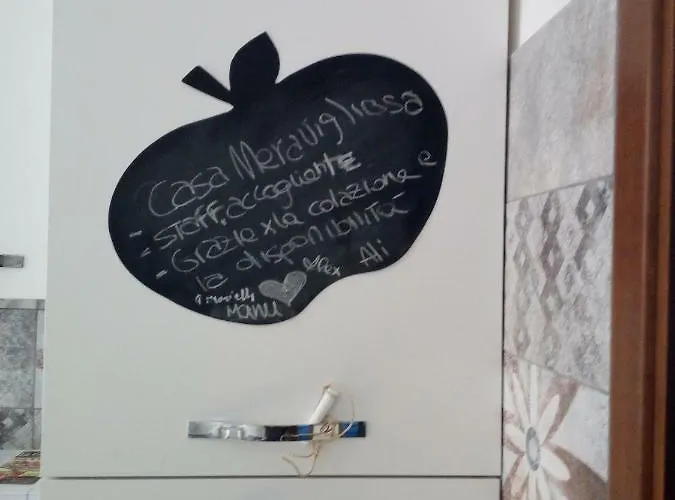 Casa Meravigliosa
- STAFF, accogliente
- Grazie x la colazione e
la disponibilità
Alex Ali
MANU